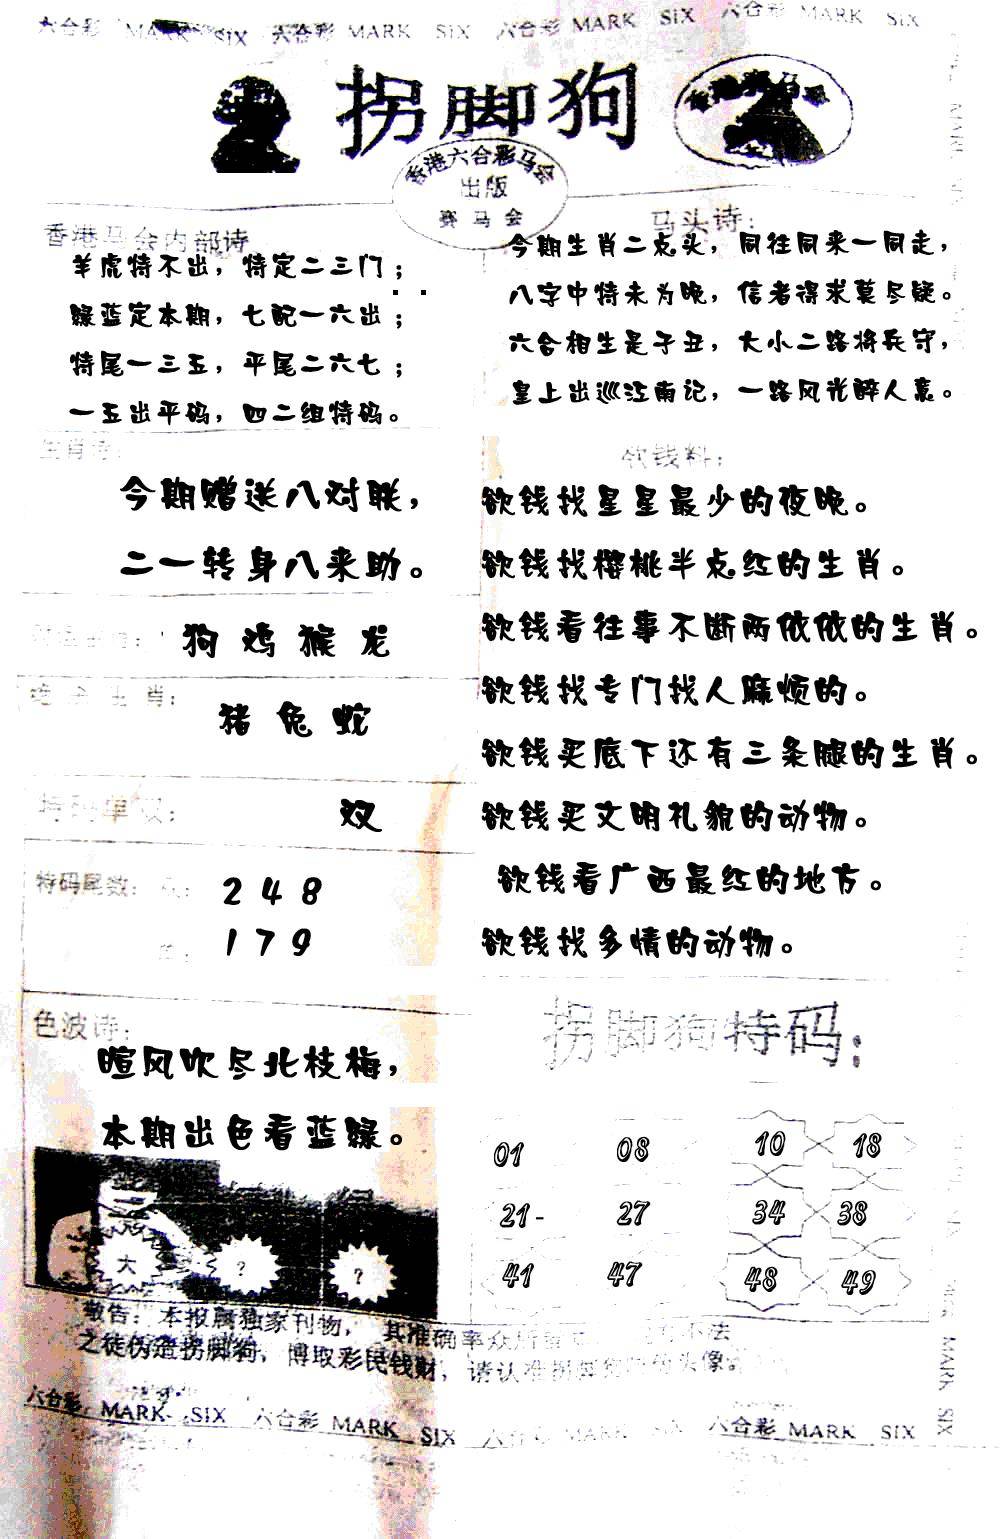 六合彩 MARK SIX 六合彩 MARK SIX 六合彩 MARK SIX 六合彩 MARK SIX
拐脚狗
香港六合彩马会
出版
赛马会
香港马会内部诗
羊虎特不出，特定二三门；
绿蓝定本期，七配一六出；
特尾一三五，平尾二六七；
一五出平码，四二组特码。
马头诗：
今期生肖二点头，同往同来一同走，
八字中特未为晚，信者得求莫尽疑。
六合相生是子丑，大小二路将兵守，
皇上出巡江南记，一路风光醉人意。
生肖诗：
今期赠送八对联，
二一转身八来助。
狗 鸡 猴 龙
绝杀生肖：
猪 兔 蛇
特码单双：
双
特码尾数：
2 4 8
1 7 9
色波诗：
暄风吹尽北枝梅，
本期出色看蓝绿。
大 ? ?
欲钱料：
欲钱找星星最少的夜晚。
欲钱找樱桃半点红的生肖。
欲钱看往事不断两依依的生肖。
欲钱找专门找人麻烦的。
欲钱买底下还有三条腿的生肖。
欲钱买文明礼貌的动物。
欲钱看广西最红的地方。
欲钱找多情的动物。
拐脚狗特码：
01 08 10 18
21- 27 34 38
41 47 48 49
敬告：本报属独家刊物，其准确率众所 不法
之徒伪造拐脚狗，博取彩民钱财，请认准拐脚狗 头像。
六合彩 MARK SIX 六合彩 MARK SIX 六合彩 MARK SIX 六合彩 MARK SIX
MARK SIX